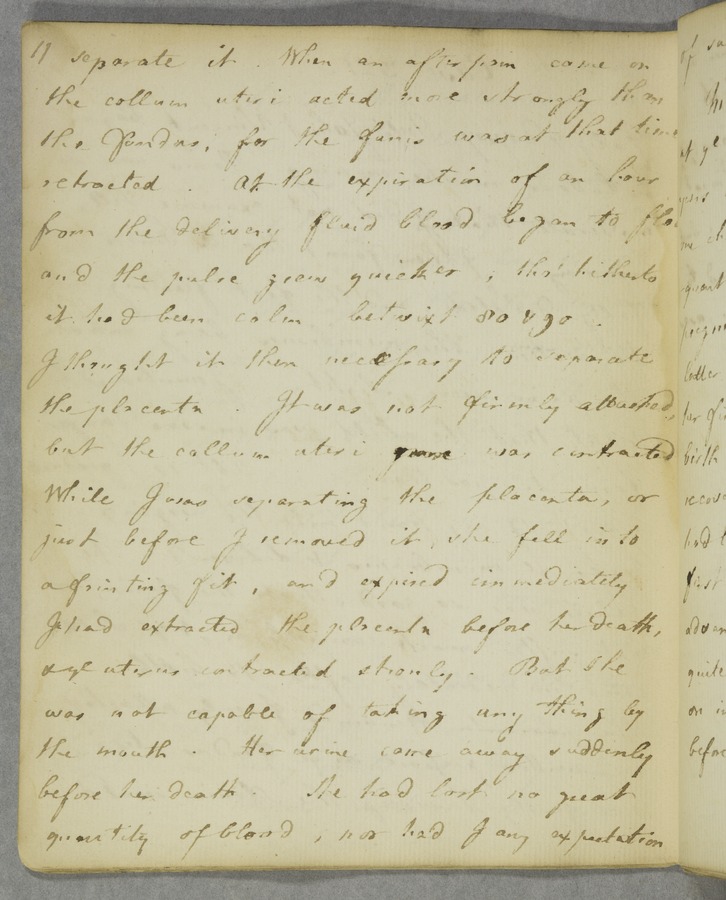 11 separate it. When an afterpain came on
the collum uteri acted more strongly than
the Fundus, for the funis was at that time
retracted. At the expiration of an hour
from the delivery fluid blood began to
and the pulse grew quicker, tho' hitherto
it had been calm betwixt 80 & 90.
I thought it then necessary to separate
the placenta. It was not firmly attached,
but the collum uteri was contracted
While I was separating the placenta, or
just before I removed it, she fell into
a fainting fit, and expired immediately
I had extracted the placenta before her death,
& ye uterus contracted stronly. But she
was not capable of taking any thing by
the mouth. Her urine came away suddenly
before her death. She had lost no great
quantity of blood, nor had I any expectation